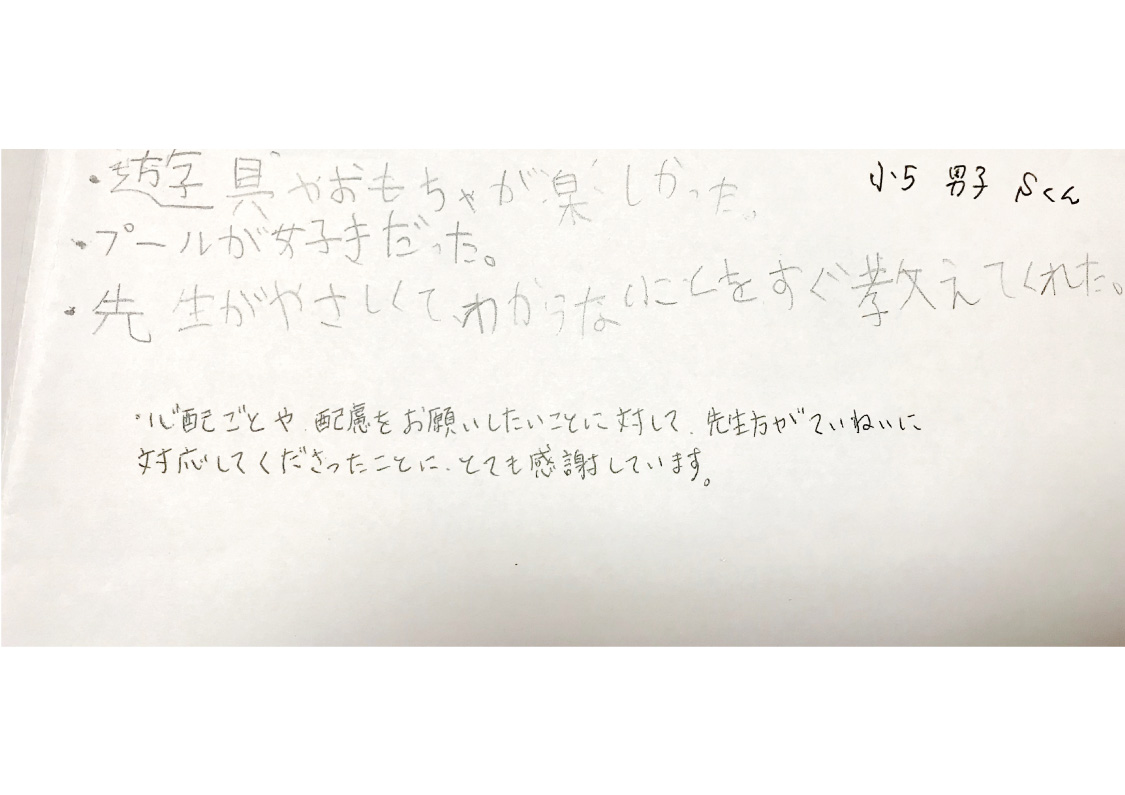 ・遊具やおもちゃが楽しかった。
小5 男子 Sくん
・プールが好きだった。
・先生がやさしくて、わからないことをすぐ教えてくれた。
・心配ごとや、配慮をお願いしたいことに対して、先生方がていねいに
対応してくださったことに、とても感謝しています。